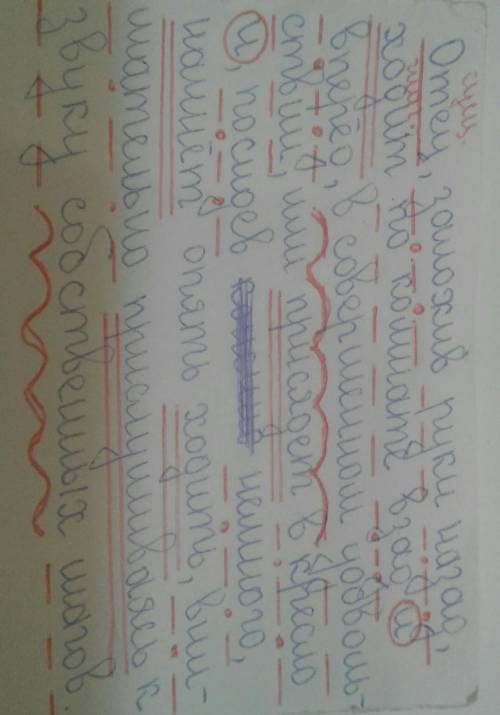 сущ.
Отец, заложив руки назад,
ходит по комнате взад и
вперёд, в совершенном удоволь-
ствии, или присядет в кресло
и, посидев немного,
начнёт опять ходить, вни-
мательно прислушиваясь к
звуку собственных шагов.